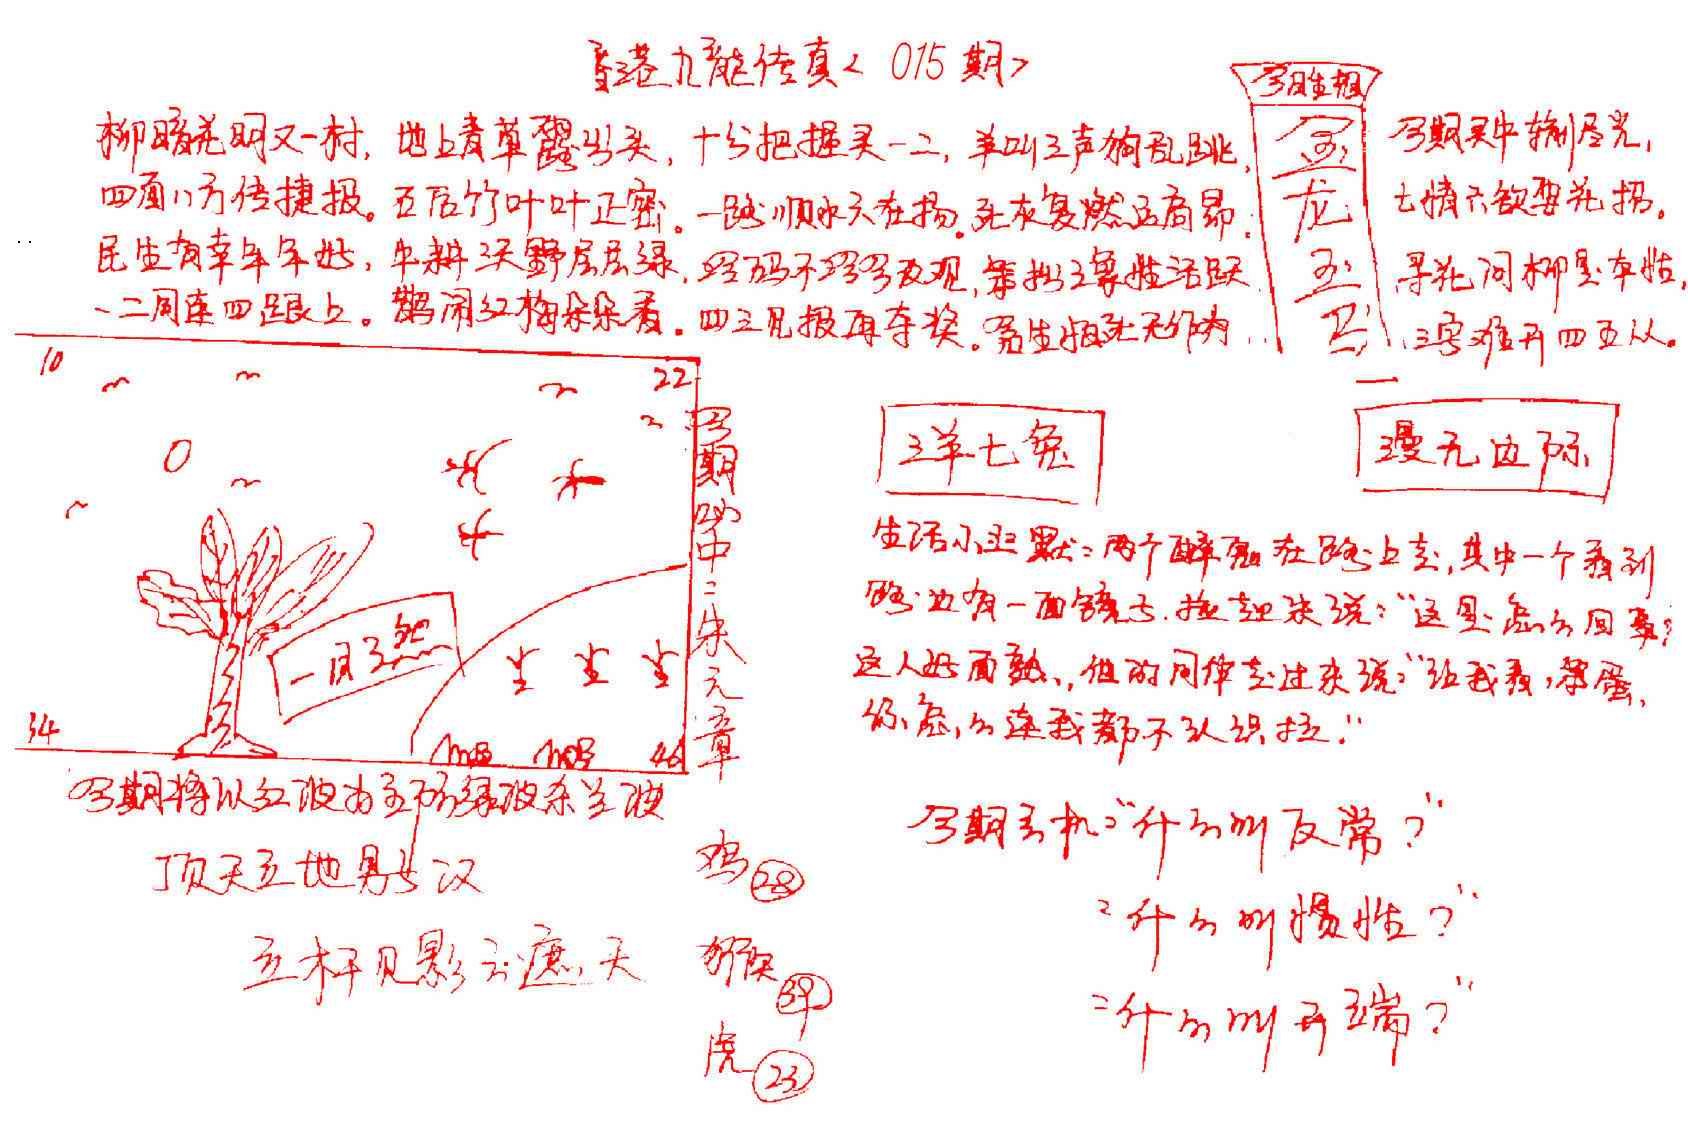 香港九龙传真<015期>
今期生相
金龙玉
柳暗花明又一村，地上青草露出头，十分把握买一二，羊叫三声狗乱跳，
四面八方传捷报。五后竹叶叶正密。一路顺水六在扬。死灰复燃五商昂.
民生有幸年年好，牛耕沃野层层绿，
一二同来四跟上。鹊闹红梅朵朵香。四三见报再夺奖。
今期买中输尽光，
七情六欲要花招。
寻花问柳是本性，
三字难开四五从。
10
22
34
46
一目了然
今期必中：朱元章
三羊七兔
漫无边际
生活小幽默：两个醉鬼在路上走，其中一个看到
路边有一面镜子.捡起来说：“这是怎么回事？
这人好面熟，他的同伴走过来说：“让我看，笨蛋，
你怎么连我都不认识拉。”
今期将以红波为主防绿波杀兰波
顶天立地男子汉
立杆见影云遮天
鸡 28
猴 39
虎 23
今期玄机：“什么叫反常？”
：“什么叫惯性？”
：“什么叫开端？”